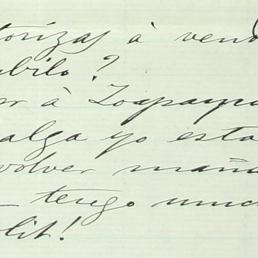 torizas à vend
ubilo?
or à Zoapayu
alga yo esta
volver maña
tengo muc
lit!